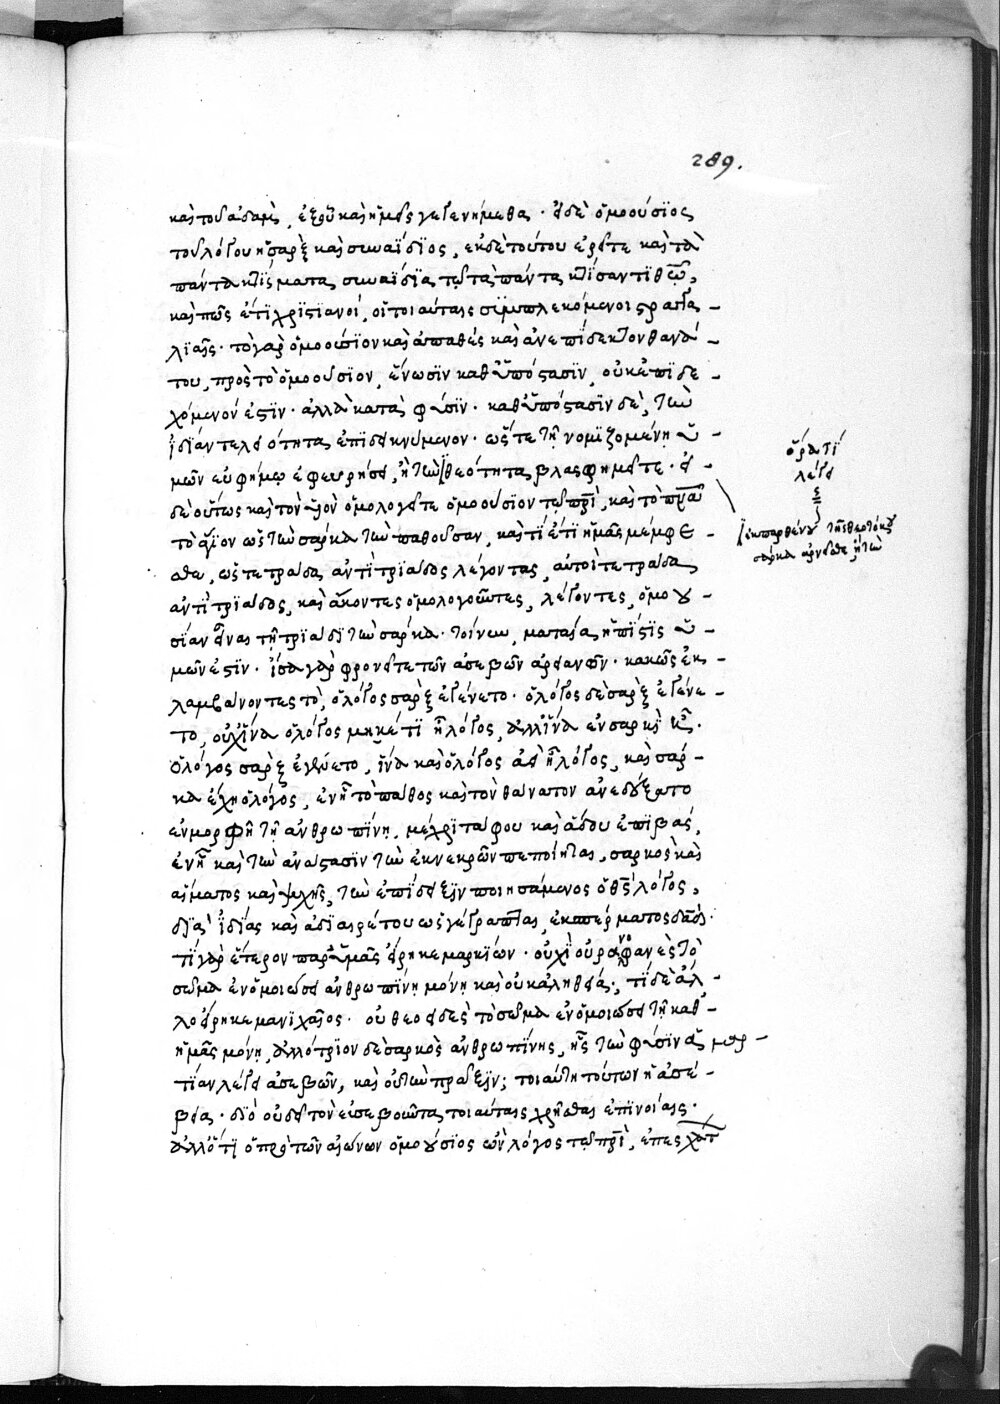 289.
καὶ τοῦ ἀδὰμ, ἐξ οὗ καὶ ἡμεῖς γεγενήμεθα. εἰ δὲ ὁμοούσιος
τοῦ λόγου ἡ σαρξ καὶ συναΐδιος, ἐκ δὲ τούτου ἐρεῖτε καὶ τὰ
πάντα κτίσματα συναΐδια τῷ τὰ πάντα κτίσαντι θεῷ,
καὶ πῶς ἔτι χριστιανοί, οἱ τοιαύταις συμπλεκόμενοι στραγγα –
λιαῖς. τὸ γὰρ ὁμοούσιον καὶ ἀπαθὲς καὶ ἀνεπίδεκτον θανά –
του, πρὸς τὸ ὁμοούσιον, ἕνωσιν καθ' ὑπόστασιν, οὐκ ἐπιδε –
χόμενόν ἐστιν. ἀλλὰ κατὰ φύσιν. καθ' ὑπόστασιν δὲ, τὴν
ἰδίαν τελειότητα ἐπιδεικνύμενον. ὥστε τῇ νομιζομένῃ ὑ –
μῶν εὐφήμῳ ἐφευρήσει, ἢ τὴν θεότητα βλασφημεῖτε. εἰ –
δὲ οὕτως καὶ τὸν υἱὸν ὁμολογεῖτε ὁμοούσιον τῷ πρὶ, καὶ τὸ πνα
τὸ ἅγιον ὡς τὴν σάρκα τὴν παθοῦσαν, καὶ τί ἔτι ἡμᾶς μέμφε –
σθε, ὡς τετράδα ἀντὶ τριάδος λέγοντας, αὐτοὶ τετράδα
ἀντὶ τριάδος, καὶ ἄκοντες ὁμολογοῦντες, λέγοντες, ὁμοου –
σίαν εἶναι τῇ τριάδι τὴν σάρκα. τοίνυν, ματαία ἡ πίστις ὑ –
μῶν ἐστιν. ἴσα γὰρ φρονεῖτε τῶν ἀσεβῶν ἀρειανῶν. κακῶς ἐκ –
λαμβάνοντες τὸ, ὁ λόγος σαρξ ἐγένετο. ὁ λόγος δὲ σαρξ ἐγένε –
το, οὐχ ἵνα ὁ λόγος μηκέτι ᾖ λόγος, ἀλλ' ἵνα ἐν σαρκὶ ᾖ.
ὁ λόγος σαρξ ἐγένετο, ἵνα καὶ ὁ λόγος ἀεὶ ᾖ λόγος, καὶ σάρ –
κα ἔχῃ ὁ λόγος, ἐν ᾗ τὸ πάθος καὶ τὸν θάνατον ἀνεδέξατο
ἐν μορφῇ τῇ ἀνθρωπίνῃ, μέχρι τάφου καὶ ᾅδου ἐπιβάς,
ἐν ᾗ καὶ τὴν ἀνάστασιν τὴν ἐκ νεκρῶν πεποίηται, σαρκὸς καὶ
αἵματος καὶ ψυχῆς, τὴν ἐπίδειξιν ποιησάμενος ὁ θς λόγος,
διὰ ἰδίας καὶ ἀδιαιρέτου ὡς γέγραπται, ἐκ σπέρματος δαδ.
τί γὰρ ἕτερον παρ' ὑμᾶς εἴρηκε μαρκίων. οὐχὶ οὐρανοφανὲς τὸ
σῶμα ἐν ὁμοιώσει ἀνθρωπίνῃ μόνῃ καὶ οὐκ ἀληθείᾳ; τί δὲ ἄλ –
λο εἴρηκε μανιχαῖος. οὐ θεοειδὲς τὸ σῶμα ἐν ὁμοιώσει τῇ καθ' –
ἡμᾶς μόνῃ, ἀλλότριον δὲ σαρκὸς ἀνθρωπίνης, ἧς τὴν φύσιν ἁμαρ –
τίαν λέγει ἀσεβῶν, καὶ οὐ τὴν πρᾶξιν; τοιαύτη τούτων ἡ ἀσέ –
βεια. διὸ οὐ δεῖ τὸν εὐσεβοῦντα τοιαύταις χρῆσθαι ἐπινοίαις.
ἀλλ' ὅτι ὁ πρὸ τῶν αἰώνων ὁμοούσιος ὢν λόγος τῷ πρὶ, ἐπ' ἐσχάτ
ὅρα τί
λέγει
ἐκ παρθένου τῆς θεοτόκου
σάρκα ἀρνεῖσθε, ἢ τὴν